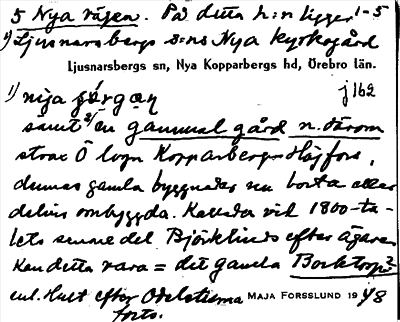 5 Nya vägen. På detta h:n ligger 1-5
1) Ljusnarsbergs s:ns Nya kyrkogård
Ljusnarsbergs sn, Nya Kopparbergs hd, Örebro län.
1) nija j162
samt 2) en gammal gård n. därom
strax Ö logn Kopparbergs Höjfors,
dennas gamla byggnader nu borta eller
delvis ombyggda. Kallades vid 1800-ta-
lets senare del Björklunds efter ägaren
Kan detta vara = det gamla Borktorp?
enl. Hult efter Odelstierna MAJA FORSSLUND 1948
forts.